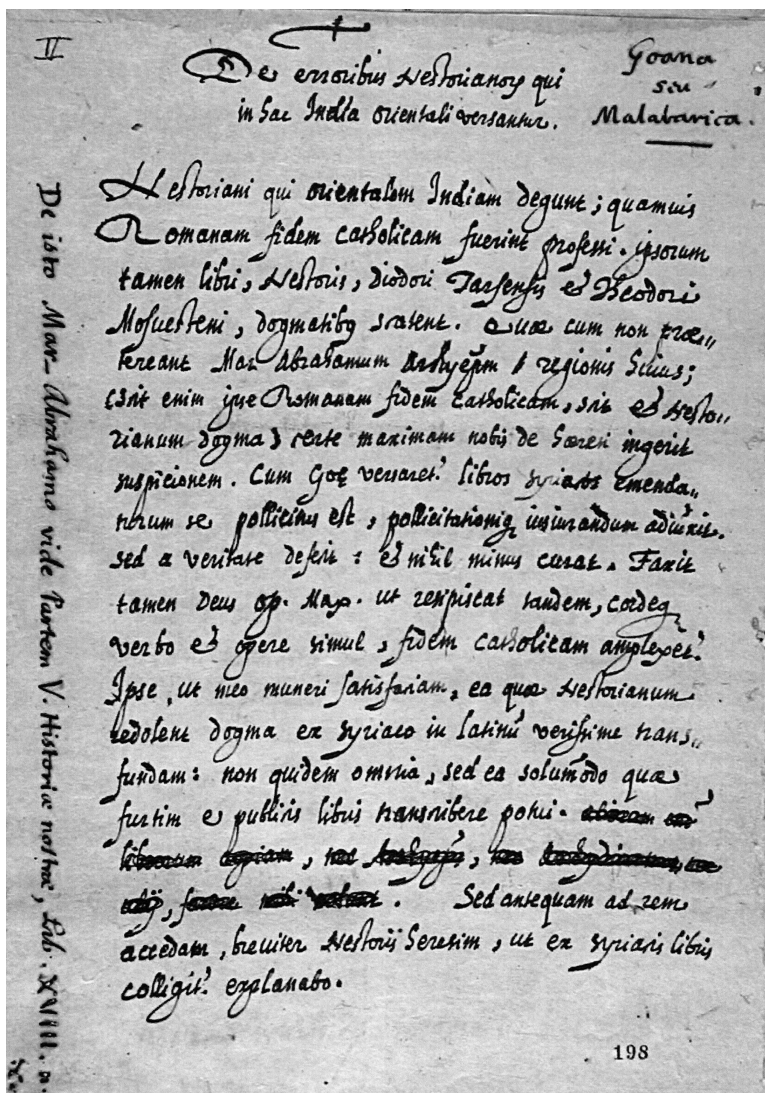 II
De erroribus Nestorianorꝝ qui
in hac India orientali versantur.
Goana
siu
Malabarica.
Nestoriani qui orientalem Indiam degunt; quamuis
Romanam fidem catholicam fuerint professi. ipsorum
tamen libri, Nestoris, Diodori Tarsensis & Theodori
Mosuesteni, dogmatibꝯ scatent. Quæ cum non præ„
tereant Mar Abrahamum regionis huius;
(scit enim ipse Romanam fidem catholicam, scit & Nesto„
rianum dogma) certe maximam nobis de hæresi ingerit
suspicionem. Cum Goę versaret.' libros syriacos emenda„
turum se pollicitus est, pollicitationiqꝫ iusiurandum adiunxit.
sed a veritate desciit: & nihil minus curat. Faxit
tamen Deus op. Max. ut resipiscat tandem, cordeqꝫ
verbo & opere simul, fidem catholicam amplexet.'
Ipse, ut meo muneri satisfaciam, ea quæ Nestorianum
redolent dogma ex syriaco in latinũ verissime trans„
fundam: non quidem omnia, sed ea solum̃odo quæ
furtim e publicis libris transcribere potui.
Sed antequam ad rem
accedam, breuiter Nestorij heresim, ut ex syriacis libris
colligit.' explanabo.
De isto Mar-Abrahamo vide Partem V. Historiæ nostræ, Lib. XVIII. n.
198